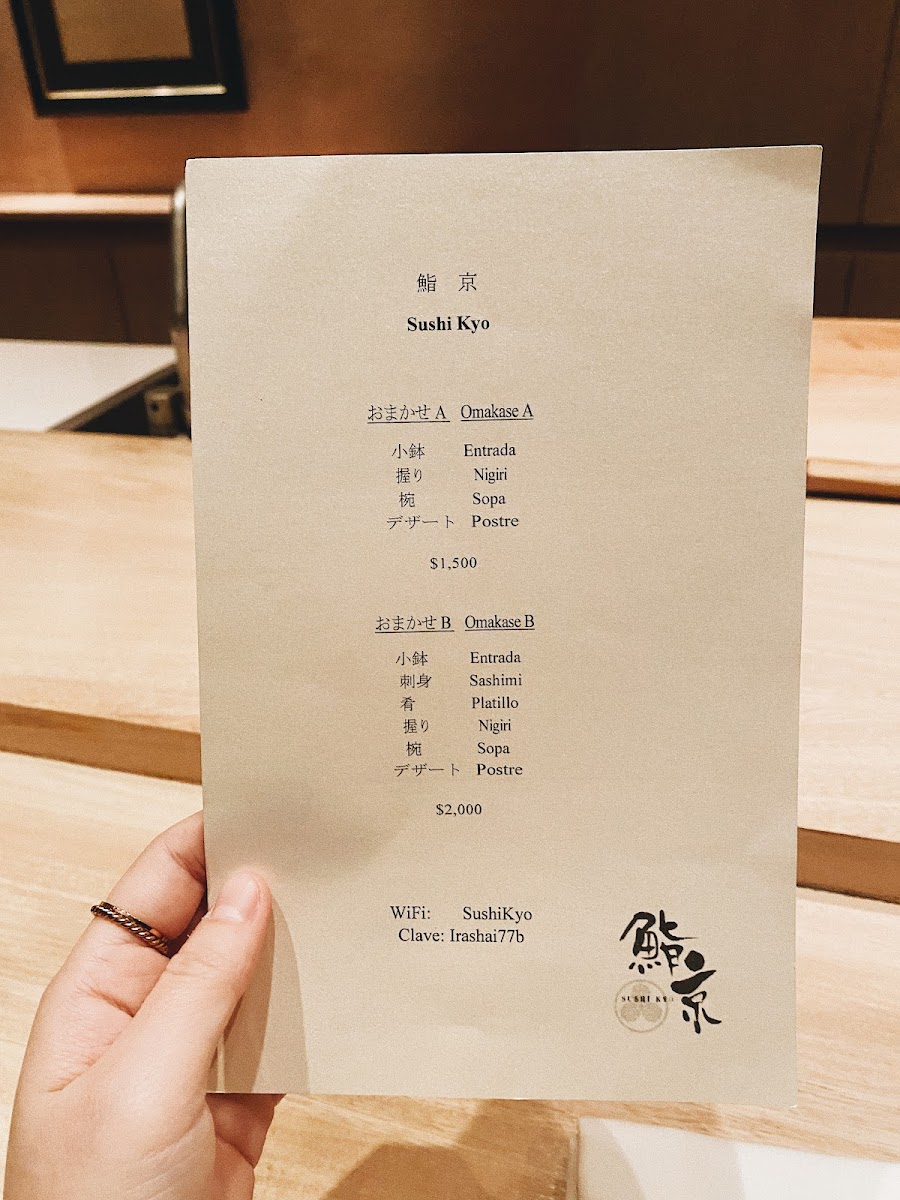 鮨 京
Sushi Kyo
おまかせ A Omakase A
小鉢 Entrada
握り Nigiri
椀 Sopa
デザート Postre
$1,500
おまかせ B Omakase B
小鉢 Entrada
刺身 Sashimi
肴 Platillo
握り Nigiri
椀 Sopa
デザート Postre
$2,000
WiFi: SushiKyo
Clave: Irashai77b
鮨京
SUSHI KYO